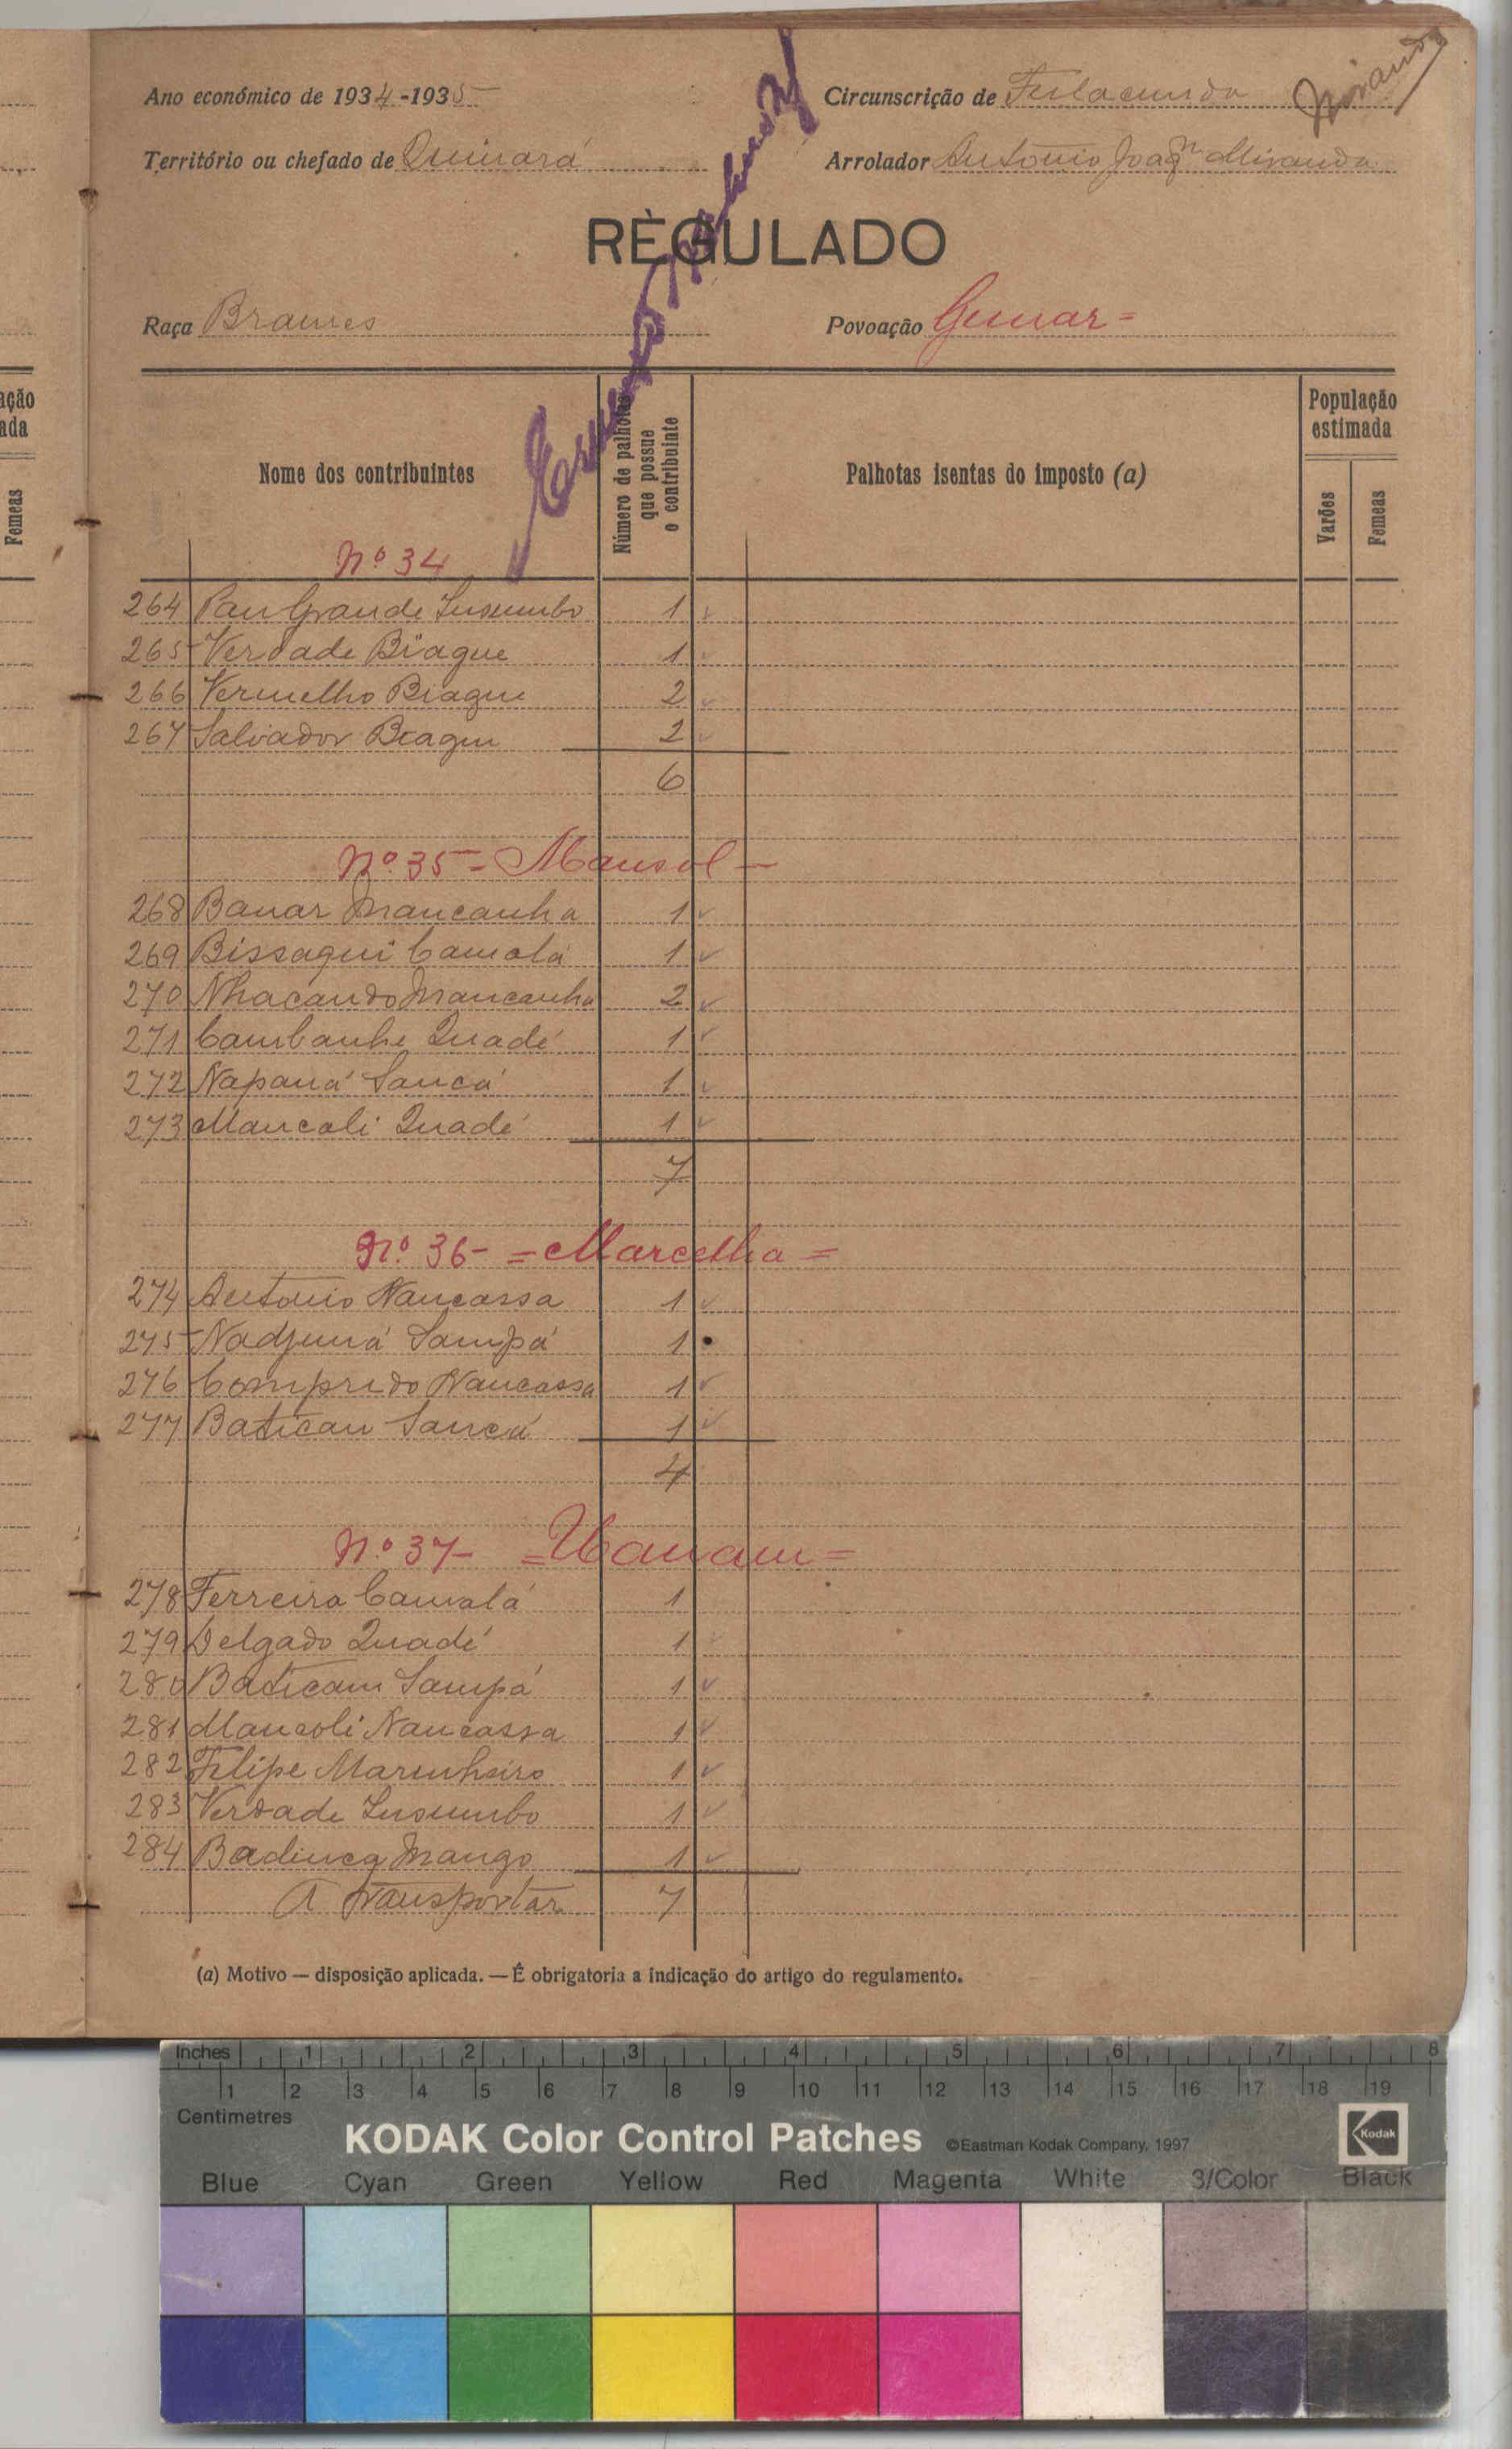 Ano económico de 1934-1935
Circunscrição de Fulacunda
Miranda
Território ou chefado de Quinará
Arrolador António Joaqm Miranda
RÈGULADO
Raça Brames
Povoação
ação
ada
Femeas
Nome dos contribuintes
Número de palhotas que possue o contribuinte
Palhotas isentas do imposto (a)
População estimada
Varões
Femeas
Nº 34
264 Pau Grande 1
265 Verdade Biague 1
266 Vermelho Biague 2
267 Salvador Biague 2
6
Nº 35 = Mansol -
268 Banar Mancanha 1
269 Bissaqui Camalá 1
270 Nhacando Mancanha 2
271 Cambanhe Quadé 1
272 Napaná Sancá 1
273 Mancali Quadé 1
7
Nº 36 - = Marcelha =
274 António Nancassa 1
275 Nadjuná Sampá 1
276 Comprido Nancassa 1
277 Batican Sancá 1
4
Nº 37 - =Uanam=
278 Ferreira Camalá 1
279 Delgado Quadé 1
280 Baticam Sampá 1
281 Mancoli Nancassa 1
282 Filipe Marinheiro 1
283 Verdade 1
284 Badinca Mango 1
A transportar 7
(a) Motivo — disposição aplicada. — É obrigatoria a indicação do artigo do regulamento.
Inches 1 2 3 4 5 6 7 8
1 2 3 4 5 6 7 8 9 10 11 12 13 14 15 16 17 18 19
Centimetres
KODAK Color Control Patches ©Eastman Kodak Company, 1997 Kodak
Blue Cyan Green Yellow Red Magenta White 3/Color Black